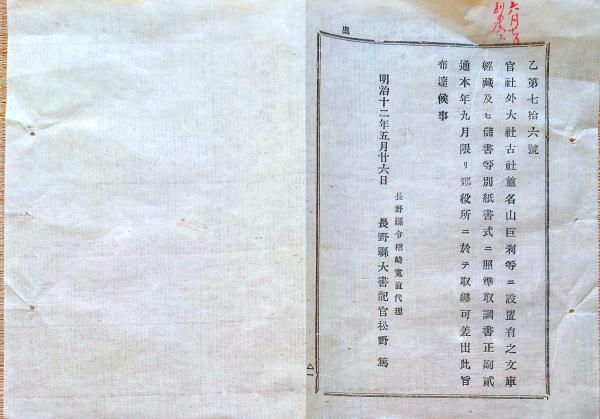 乙第七拾六號
官社外大社古社並名山巨刹等ニ設置有之文庫
經藏及ヒ儲書等別紙書式ニ照準取調書正副貳
通本年九月限リ郡役所ニ於テ取纒可差出此旨
布達候事
明治十二年五月廿六日
長野縣令楢崎寬直代理
長野縣大書記官松野篤